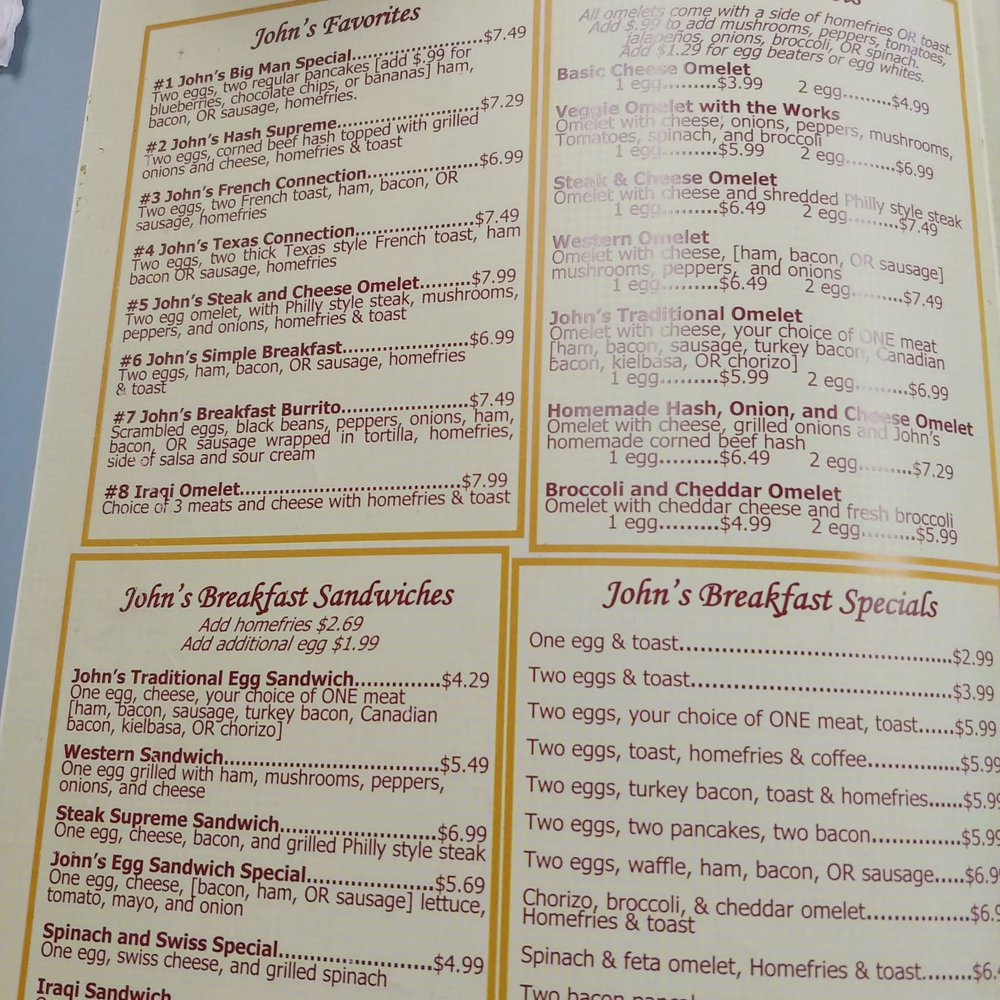 John's Favorites
#1 John's Big Man Special....................$7.49
Two eggs, two regular pancakes [add $.99 for
blueberries, chocolate chips, or bananas] ham,
bacon, OR sausage, homefries.
#2 John's Hash Supreme......................$7.29
Two eggs, corned beef hash topped with grilled
onions and cheese, homefries & toast
#3 John's French Connection.................$6.99
Two eggs, two French toast, ham, bacon, OR
sausage, homefries
#4 John's Texas Connection..................$7.49
Two eggs, two thick Texas style French toast, ham
bacon OR sausage, homefries
#5 John's Steak and Cheese Omelet.........$7.99
Two egg omelet, with Philly style steak, mushrooms,
peppers, and onions, homefries & toast
#6 John's Simple Breakfast....................$6.99
Two eggs, ham, bacon, OR sausage, homefries
& toast
#7 John's Breakfast Burrito....................$7.49
Scrambled eggs, black beans, peppers, onions, ham,
bacon, OR sausage wrapped in tortilla, homefries,
side of salsa and sour cream
#8 Iraqi Omelet...................................$7.99
Choice of 3 meats and cheese with homefries & toast
All omelets come with a side of homefries OR toast.
Add $.99 to add mushrooms, peppers, tomatoes,
jalapeños, onions, broccoli, OR spinach.
Add $1.29 for egg beaters or egg whites.
Basic Cheese Omelet
1 egg.........$3.99 2 egg.........$4.99
Veggie Omelet with the Works
Omelet with cheese, onions, peppers, mushrooms,
Tomatoes, spinach, and broccoli
1 egg.........$5.99 2 egg.........$6.99
Steak & Cheese Omelet
Omelet with cheese and shredded Philly style steak
1 egg.........$6.49 2 egg.........$7.49
Western Omelet
Omelet with cheese, [ham, bacon, OR sausage]
mushrooms, peppers, and onions
1 egg.........$6.49 2 egg.........$7.49
John's Traditional Omelet
Omelet with cheese, your choice of ONE meat
[ham, bacon, sausage, turkey bacon, Canadian
bacon, kielbasa, OR chorizo]
1 egg.........$5.99 2 egg.........$6.99
Homemade Hash, Onion, and Cheese Omelet
Omelet with cheese, grilled onions and John's
homemade corned beef hash
1 egg.........$6.49 2 egg.........$7.29
Broccoli and Cheddar Omelet
Omelet with cheddar cheese and fresh broccoli
1 egg.........$4.99 2 egg.........$5.99
John's Breakfast Sandwiches
Add homefries $2.69
Add additional egg $1.99
John's Traditional Egg Sandwich.............$4.29
One egg, cheese, your choice of ONE meat
[ham, bacon, sausage, turkey bacon, Canadian
bacon, kielbasa, OR chorizo]
Western Sandwich.................................$5.49
One egg grilled with ham, mushrooms, peppers,
onions, and cheese
Steak Supreme Sandwich.......................$6.99
One egg, cheese, bacon, and grilled Philly style steak
John's Egg Sandwich Special..................$5.69
One egg, cheese, [bacon, ham, OR sausage] lettuce,
tomato, mayo, and onion
Spinach and Swiss Special......................$4.99
One egg, swiss cheese, and grilled spinach
Iraqi Sandwich
John's Breakfast Specials
One egg & toast.......................................$2.99
Two eggs & toast.....................................$3.99
Two eggs, your choice of ONE meat, toast......$5.99
Two eggs, toast, homefries & coffee.............$5.99
Two eggs, turkey bacon, toast & homefries......$5.99
Two eggs, two pancakes, two bacon.............$5.99
Two eggs, waffle, ham, bacon, OR sausage.....$6.99
Chorizo, broccoli, & cheddar omelet...............$6.9
Homefries & toast
Spinach & feta omelet, Homefries & toast........$6.4
Two bacon